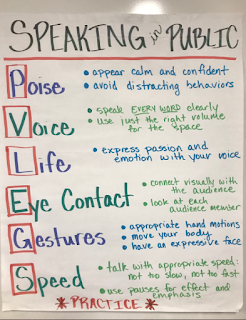 SPEAKING in PUBLIC
Poise
• appear calm and confident
• avoid distracting behaviors
Voice
• speak EVERY WORD clearly
• use just the right volume
for the space
Life
• express passion and
emotion with your voice
Eye Contact
• connect visually with
the audience
• look at each
audience member
Gestures
• appropriate hand motions
• move your body
• have an expressive face
Speed
• talk with appropriate speed:
not too slow, not too fast
• use pauses for effect and
emphasis
*PRACTICE*